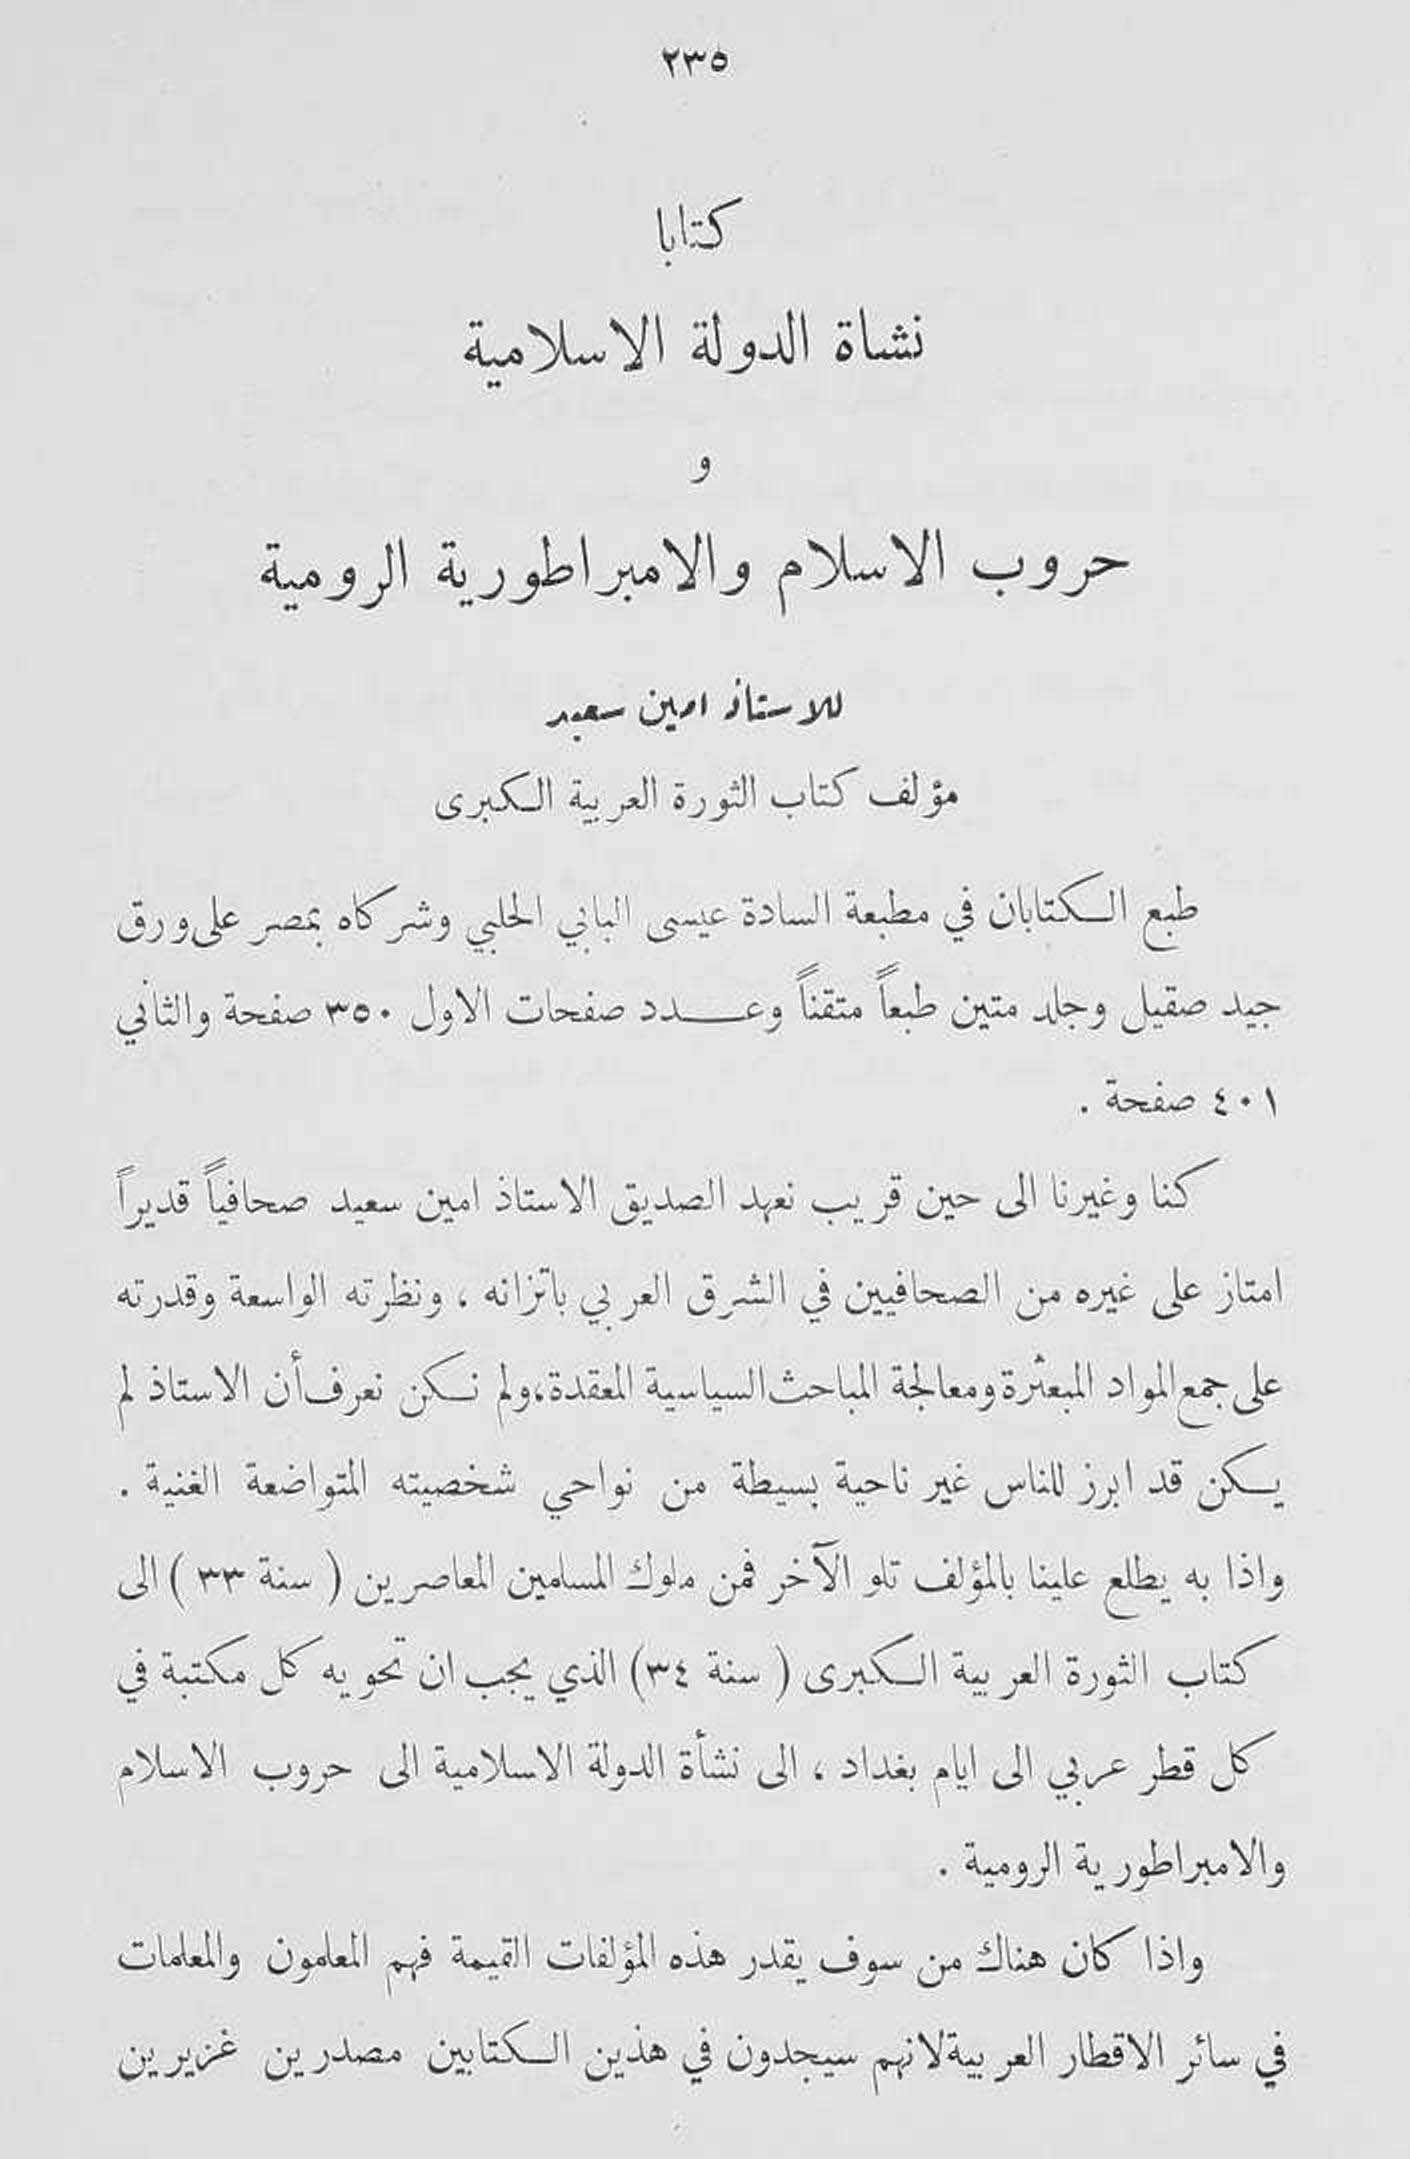 ٢٣٥
كتابا
نشاة الدولة الاسلامية
و
حروب الاسلام والامبراطورية الرومية
للاستاذ امين سعيد
مؤلف كتاب الثورة العربية الكبرى
طبع الكتابان في مطبعة السادة عيسى البابي الحلبي وشركاه بمصر على ورق
جيد صقيل وجلد متين طبعاً متقناً وعدد صفحات الاول ٣٥٠ صفحة والثاني
٤٠١ صفحة .
كنا وغيرنا الى حين قريب نعهد الصديق الاستاذ امين سعيد صحافياً قديراً
امتاز على غيره من الصحافيين في الشرق العربي باتزانه ، ونظرته الواسعة وقدرته
على جمع المواد المبعثرة ومعالجة المباحث السياسية المعقدة، ولم نكن نعرف أن الاستاذ لم
يكن قد ابرز للناس غير ناحية بسيطة من نواحي شخصيته المتواضعة الغنية .
واذا به يطلع علينا بالمؤلف تلو الآخر فمن ملوك المسلمين المعاصرين ( سنة ٣٣ ) الى
كتاب الثورة العربية الكبرى ( سنة ٣٤) الذي يجب ان تحويه كل مكتبة في
كل قطر عربي الى ايام بغداد ، الى نشأة الدولة الاسلامية الى حروب الاسلام
والامبراطورية الرومية .
واذا كان هناك من سوف يقدر هذه المؤلفات القيمة فهم المعلمون والمعلمات
في سائر الاقطار العربية لانهم سيجدون في هذين الكتابين مصدرين غزيرين